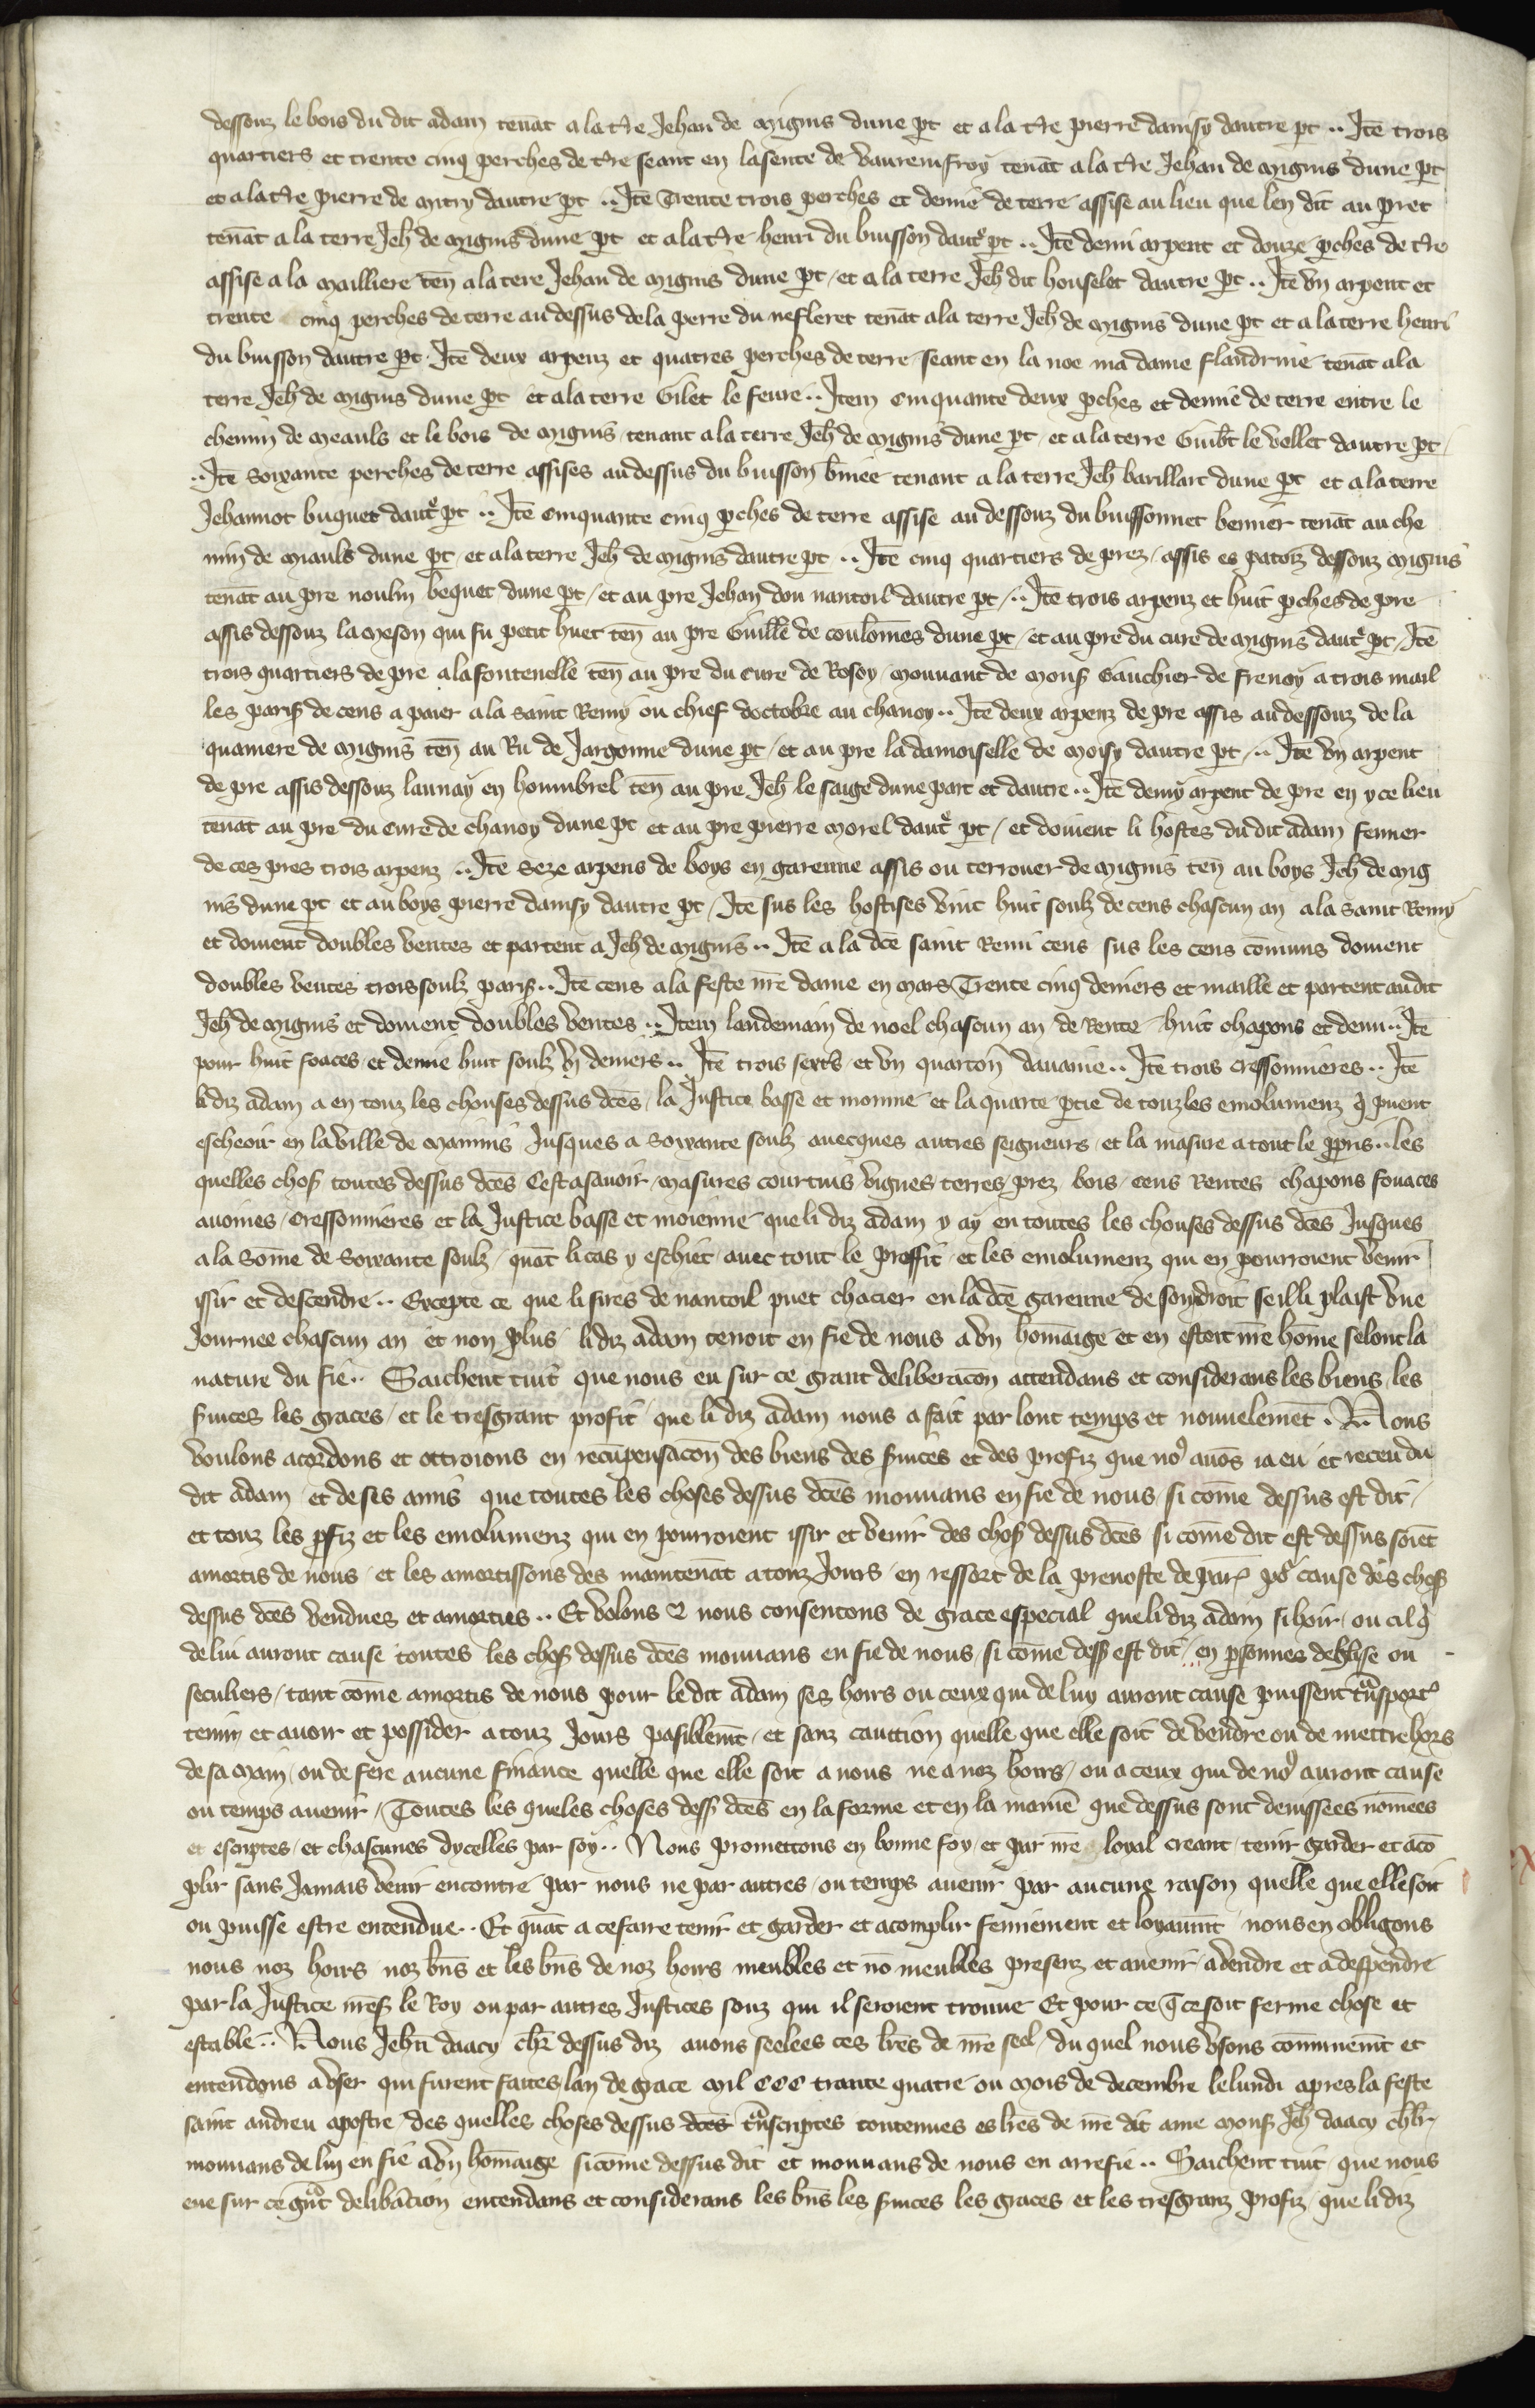 dessouz le bois du dit adam tenāt a la t̄re Jehan de mignis dune p̄t et a la t̄re pierre damsy dautre p̄t .. Itē trois
quartiers et trente cinq perches de t̄re seant en lasente de vauremfroy tenāt a la t̄re Jehan de mignis dune p̄t
et a la t̄re pierre de mitry dautre p̄t .. Itē Trente trois perches et demie de terre assise au lieu que len dit au pret
tenāt a la terre Jeh̄ de mignis dune p̄t et a la t̄re henri du buisson daut̉ p̄t .. Itē demi arpent et douze p̄ches de t̄re
assise a la mailliere ten̄ a la tere Jehan de mignis dune p̄t / et a la terre Jeh̄ dit houselet dautre p̄t .. Itē vn arpent et
trente cinq perches de terre au dessus de la perre du nesleret tenāt a la terre Jeh̄ de mignis dune p̄t et a la terre henri
du buisson dautre p̄t . Itē deux arpenz et quatres perches de terre seant en la noe ma dame flandrine tenāt a la
terre Jeh̄ de mignis dune p̄t et a la terre Gilet le feure .. Item cinquante deux p̄ches et demie de terre entre le
chemin de meauls et le bois de mignis / tenant a la terre Jeh̄ de mignis dune p̄t / et a la terre Guib̄t le vellet dautre p̄t /
.. Itē soixante perches de terre assises au dessus du buisson b̄nier tenant a la terre Jeh̄ barillart dune p̄t et a la terre
Jehannot buquet daut̉ p̄t .. Itē cinquante cinq p̄ches de terre assise au dessouz du buissonnet bernier tenāt au che
min de miauls dune p̄t / et a la terre Jeh̄ de mignis dautre p̄t .. Itē cinq quartiers de prez / assis es patoiz dessouz mignis
tenāt au pre noulin bequet dune p̄t / et au pre Jehan dou nantoil dautre p̄t / .. Itē trois arpenz et huit p̄ches de pre
assis dessouz la meson qui fu petit huet ten̄ au pre Guill̄e de coulom̄es dune p̄t / et au pre du cure de mignis daut̉ p̄t / Itē
trois quartiers de pre a la fontenelle ten̄ au pre du cure de Rosoy / mouuant de mons̄ Gauchier de frenoy a trois mail
les paris̄ de cens a paier a la saint Remy ou chief doctobre au chanoy .. Itē deux arpenz de pre assis au dessouz de la
quarriere de mignis ten̄ au Ru de Jargonne dune p̄t / et au pre la damoiselle de moisy dautre p̄t / .. Itē vn arpent
de pre assis dessouz launay en houmbrel ten̄ au pre Jeh̄ le saige dune part et dautre .. Itē demy arpent de pre en yce lieu
tenāt au pre du cure de chanoy dune p̄t et au pre pierre morel daut̉ p̄t / et doiuent li hostes du dit adam fenner
de ces pres trois arpenz .. Itē Seze arpens de boys en garenne assis ou terrouer de mignis ten̄ au boys Jeh̄ de mig
nis dune p̄t et au boys pierre damsy dautre p̄t / Itē sus les hostises vint huit soulz de cens chascun an a la saint Remy
et doiuent doubles ventes et partent a Jeh̄ de mignis .. Itē a la dc̄e saint Remi cens sus les cens cōmuns doiuent
doubles ventes trois soulz paris̄ .. Itē cens a la feste nr̄e dame en mars Trente cinq deniers et maille et partent audit
Jeh̄ de mignis et doiuent doubles ventes .. Item landemain de noel chascun an de Rente huit chapons et demi .. Itē
pour huit foaces et demie huit soulz vj deniers .. Itē trois sext̄s et vn quarton̄ dauaine .. Itē trois cressonnieres .. Itē
li diz adam a en touz les chouses dessus dc̄es / la Justice basse et moinne et la quarte p̄tie de touz les emolumenz q̉ puent
escheoir en la ville de manims Jusques a soixante soulz auecques autres seigneurs / et la masure a tout le p̄pris .. les
quelles chos̄ toutes dessus dc̄es Cest asauoir masures courtuis vignes terres prez bois / cens Rentes chapons fouaces
auoines / cressonnieres et la Justice basse et moienne que li diz adam y ay en toutes les chouses dessus dc̄es Jusques
a la som̄e de soixante soulz / quāt li cas y eschiet / auec tout le proffit / et les emolumenz qui en pourroient venir
issir et descendre .. Excepte ce que li sires de nantoil puet chacier en la dc̄e garenne de son droit se il li plaist vne
Journee chascun an et non plus li diz adam tenoit en fie de nous a vn hom̄aige et en estoit nr̄e hom̄e selont la
nature du fie .. Saichent tuit que nous eu sur ce grant deliberac̄on attendans et considerans les biens les
s̄uices les graces / et le tresgrant profit / que li diz adam nous a fait par lont temps et nouuelemēt . Nous
voulons acordons et ottroions en recūpensac̄on des biens des s̄uices et des profiz que no9 auōs ia eu et receu du
dit adam et de ses amis que toutes les choses dessus dc̄es mouuans en fie de nous / si com̄e dessus est dit /
et touz les p̄fiz et les emolumenz qui en pourroient issir et venir des chos̄ dessus dc̄es si com̄e dit est dessus soiēt
amortis de nous / et les amortissons des maintenāt a touz Jours / en ressort de la preuoste de par̄ pỏ cause des chos̄
dessus dc̄es vendues et amorties .. Et volons & nous consentons de grace especial que li diz adam si hoir / ou cil q̉
de lui auront cause toutes les chos̄ dessus dc̄es mouuans en fie de nous / si com̄e dess̄ est dit / en p̄sonnes deglise ou
seculiers / tant com̄e amortis de nous pour le dit adam ses hoirs ou ceux qui de luy auront cause puissent tn̄sport̉
tenir et auoir et possider a touz Jours pasiblem̄t / et sanz cauttion quelle que elle soit de vendre ou de mettre hors
de sa main / ou de fere aucune finance quelle que elle soit a nous ne a noz hoirs / ou a ceux qui de no9 auront cause
ou temps auenir / Toutes les queles choses dess̄ dc̄es en la forme et en la maniẻ que dessus sont deuissees nōmees
et escriptes / et chascunes dycelles par soy .. Nous promettons en bonne foy / et par nr̄e loyal creant / tenir garder et acō
plir sans Jamais venir encontre par nous ne par autres / ou temps auenir par aucune raison quelle que elle soit
ou puisse estre entendue .. Et quāt a ce faire tenir et garder et acomplir fermement et loyaum̄t nous en obligons
nous noz hoirs noz bn̄s et les bn̄s de noz hoirs meubles et nō meubles presenz et auenir / a vendre et a despendre
par la Justice nr̄es̄ le Roy ou par autres Justices souz qui il seroient trouue Et pour ce q̄ ce soit ferme chose et
estable .. Nous Jeh̄n daacy ch̄r dessus diz auons seelees ces lr̄es de nr̄e seel / du quel nous vsons cōmunem̄t et
entendons a vser qui furent faites lan de grace mil CCC trante quatre ou mois de decembre le lundi apres la feste
saint andreu apostre / des quelles choses dessus dc̄es tn̄scriptes contenues es lr̄es de nr̄e dit ame mons̄ Jeh̄ daacy ch̄lr
mouuans de luy en fie a vn hom̄aige si com̄e dessus dit et mouuans de nous en arrefie .. Saichent tuit que nous
eue sur ce gn̄t delib̄ation entendans et considerans les bn̄s les s̄uices les graces et les tresgranz profiz / que li diz